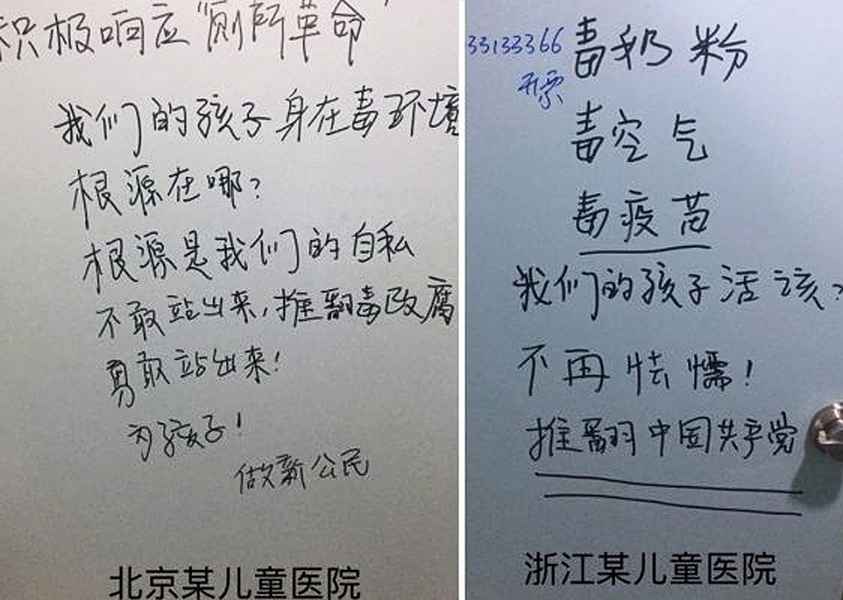 积极响应“厕所革命”
我们的孩子身在毒环境
根源在哪？
根源是我们的自私
不敢站出来，推翻毒政腐
勇敢站出来！
为孩子！
做新公民
北京某儿童医院
33133366
开票
毒奶粉
毒空气
毒疫苗
我们的孩子活该？
不再怯懦！
推翻中国共产党
浙江某儿童医院